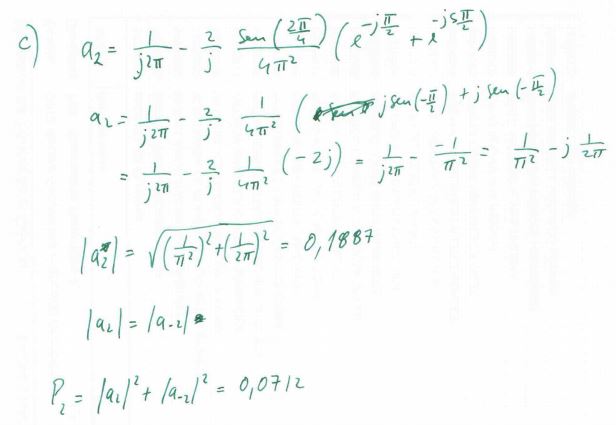 c) a₂ = 1/(j2π) - 2/j sen(2π/4)/(4π²) (e^(-jπ/2) + e^(-j5π/2))
a₂ = 1/(j2π) - 2/j 1/(4π²) (j sen(-π/2) + j sen(-π/2))
= 1/(j2π) - 2/j 1/(4π²) (-2j) = 1/(j2π) - (-1)/(π²) = 1/π² - j 1/(2π)
|a₂| = √((1/π²)² + (1/2π)²) = 0,1887
|a₂| = |a₋₂|
P₂ = |a₂|² + |a₋₂|² = 0,0712